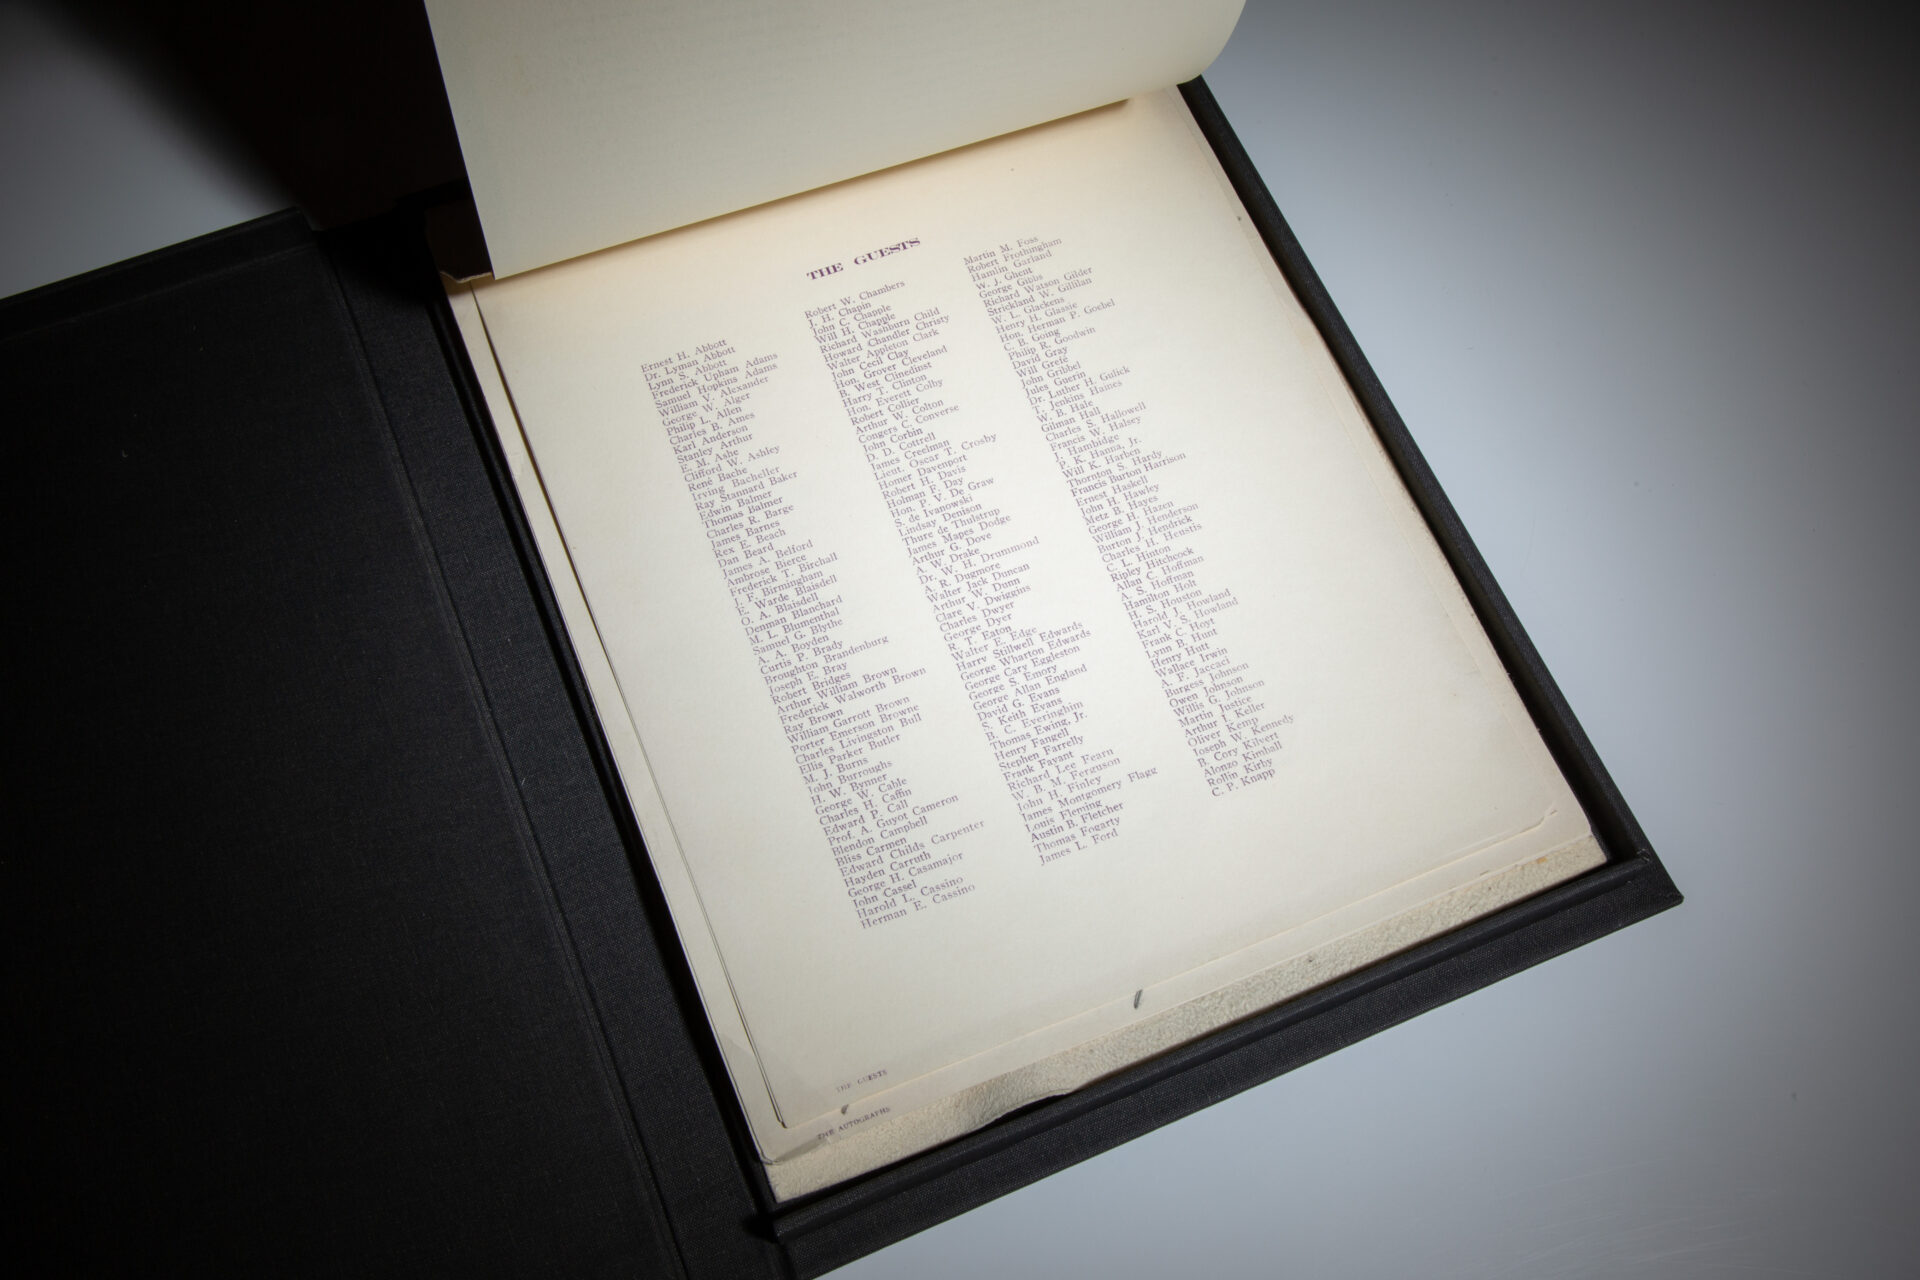 THE GUESTS
Ernest H. Abbott
Dr. Lyman Abbott
Lynn S. Abbott
Frederick Upham Adams
Samuel Hopkins Adams
William V. Alexander
George W. Alger
Philip L. Allen
Charles B. Ames
Karl Anderson
Stanley Arthur
E. M. Ashe
Clifford W. Ashley
René Bache
Irving Bacheller
Ray Stannard Baker
Edwin Balmer
Thomas Balmer
Charles R. Barge
James Barnes
Rex E. Beach
Dan Beard
James A. Belford
Ambrose Bierce
Frederick T. Birchall
J. F. Birmingham
E. Warde Blaisdell
O. A. Blaisdell
Denman Blanchard
M. L. Blumenthal
Samuel G. Blythe
A. A. Boyden
Curtis P. Brady
Broughton Brandenburg
Joseph E. Bray
Robert Bridges
Arthur William Brown
Frederick Walworth Brown
Ray Brown
William Garrott Brown
Porter Emerson Browne
Charles Livingston Bull
Ellis Parker Butler
M. J. Burns
John Burroughs
H. W. Bynner
George W. Cable
Charles H. Caffin
Edward P. Call
Prof. A. Guyot Cameron
Blendon Campbell
Bliss Carmen
Edward Childs Carpenter
Hayden Carruth
George H. Casamajor
John Cassel
Harold L. Cassino
Herman E. Cassino
Robert W. Chambers
J. H. Chapin
John C. Chapple
Will H. Chapple
Richard Washburn Child
Howard Chandler Christy
Walter Appleton Clark
John Cecil Clay
Hon. Grover Cleveland
B. West Clinedinst
Harry T. Clinton
Hon. Everett Colby
Robert Collier
Arthur W. Colton
Congers C. Converse
John Corbin
D. D. Cottrell
James Creelman
Lieut. Oscar T. Crosby
Homer Davenport
Robert H. Davis
Holman F. Day
Hon. P. V. De Graw
S. de Ivanowski
Lindsay Denison
Thure de Thulstrup
James Mapes Dodge
Arthur G. Dove
A. W. Drake
Dr. W. H. Drummond
A. R. Dugmore
Walter Jack Duncan
Arthur W. Dunn
Clare V. Dwiggins
Charles Dwyer
George Dyer
R. T. Eaton
Walter E. Edge
Harry Stillwell Edwards
George Wharton Edwards
George Cary Eggleston
George S. Emory
George Allan England
David G. Evans
S. Keith Evans
B. C. Everinghim
Thomas Ewing, Jr.
Henry Fangell
Stephen Farrelly
Frank Fayant
Richard Lee Fearn
W. B. M. Ferguson
John H. Finley
James Montgomery Flagg
Louis Fleming
Austin B. Fletcher
Thomas Fogarty
James L. Ford
Martin M. Foss
Robert Frothingham
Hamlin Garland
W. J. Ghent
George Gibbs
Richard Watson Gilder
Strickland W. Gillilan
W. L. Glackens
Henry H. Glassie
Hon. Herman P. Goebel
C. B. Going
Philip R. Goodwin
David Gray
Will Grefé
John Gribbel
Jules Guerin
Dr. Luther H. Gulick
T. Jenkins Haines
W. B. Hale
Gilman Hall
Charles S. Hallowell
Francis W. Halsey
J. Hambidge
P. K. Hanna, Jr.
Will K. Harben
Thornton S. Hardy
Francis Burton Harrison
Ernest Haskell
John H. Hawley
Metz B. Hayes
George H. Hazen
William J. Henderson
Burton J. Hendrick
Charles H.
C. L. Hinton
Ripley Hitchcock
Allan C. Hoffman
A. S. Hoffman
Hamilton Holt
H. S. Houston
Harold J. Howland
Karl V. S. Howland
Frank C. Hoyt
Lynn B. Hunt
Henry Hutt
Wallace Irwin
A. F. Jaccaci
Burgess Johnson
Owen Johnson
Willis G. Johnson
Martin Justice
Arthur I. Keller
Oliver Kemp
Joseph W. Kennedy
B. Cory Kilvert
Alonzo Kimball
Rollin Kirby
C. P. Knapp
THE GUESTS
THE AUTOGRAPHS